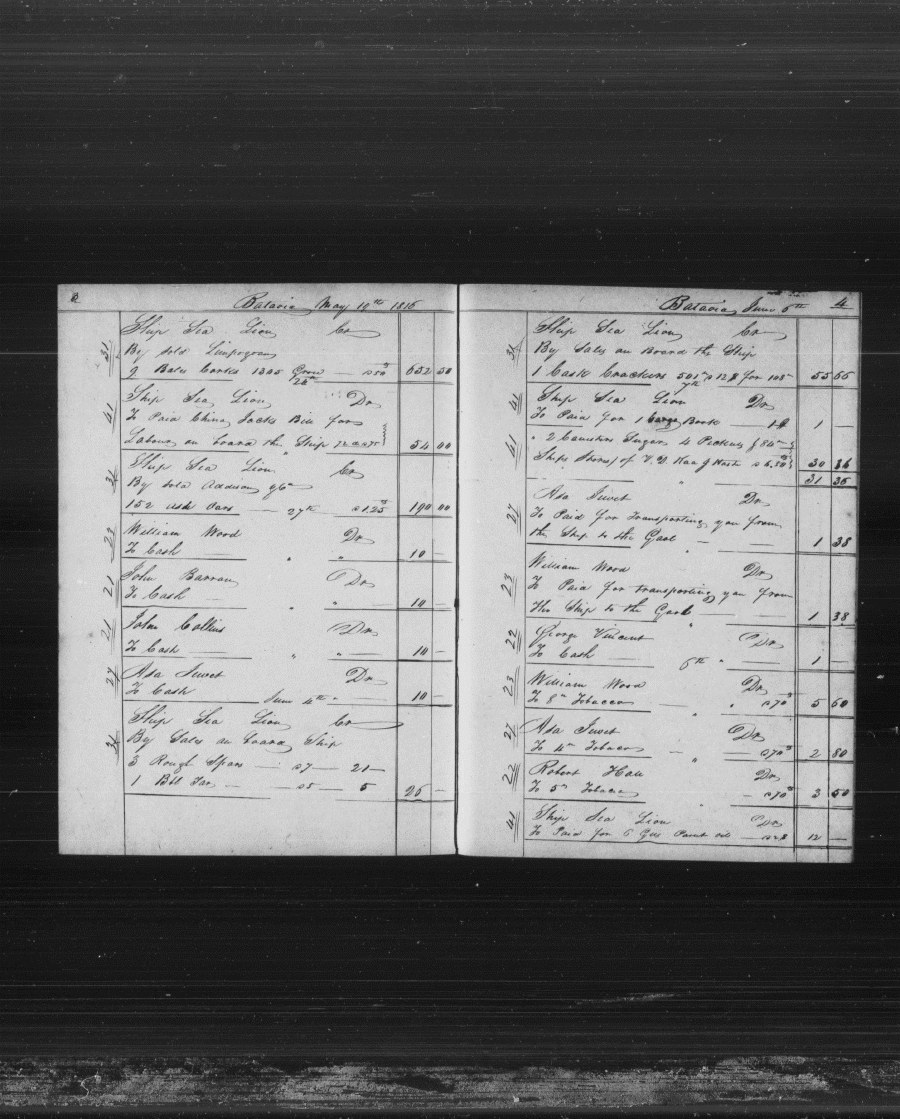 Batavia May 19th 1816
31
Ship Sea Lion Cr
By sold
9 Bales Corks 1305 Groce 50 652 50
41
Ship Sea Lion Dr
To Paid China Jacks Bill for
Labour on board the Ship 54 00
31
Ship Sea Lion Cr
By sold Addison
152 ash Oars 27th a 1.25 190 00
23
William Wood Dr
To Cash " " 10 —
21
John Barran Dr
To Cash " " 10 —
21
John Collins Dr
To Cash " " 10 —
27
Asa Jewet Dr
To Cash 10 —
June 4th
31
Ship Sea Lion Cr
By Sales on board Ship
3 Rough Spars a 7 — 21 —
1 Bbl Tar — a 5 — 5 26 —
Batavia June 5th 4
31
Ship Sea Lion Cr
By Sales on Board the Ship
1 Cask Crackers for 55 66
41
Ship Sea Lion Dr
To Paid for 1 Book 1 —
41
" 2 Canisters Sugar 4 Peckuls
Ships Stores of 30 36
31 36
27
Asa Jewet Dr
To Paid for transporting you from
the Ship to the Gaol — 1 38
23
William Wood Dr
To Paid for transporting you from
the Ship to the Gaol — 1 38
22
George Vincent Dr
To Cash 1 —
6th "
23
William Wood Dr
To 8 Tobacco a 70 5 60
27
Asa Jewet Dr
To 4 Tobacco a 70 2 80
22
Robert Hall Dr
To 5 Tobacco a 70 3 50
41
Ship Sea Lion Dr
To Paid for 6 Gals Paint oil 12 —